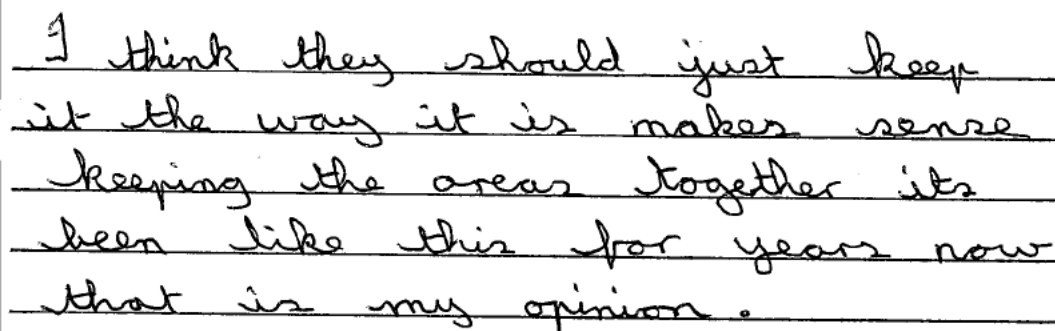 I think they should just keep
it the way it is makes sense
keeping the areas together its
been like this for years now
that is my opinion.